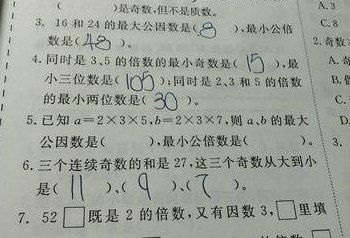 ( )是奇数,但不是质数。
3. 16 和 24 的最大公因数是( 8 ),最小公倍
数是( 48 )。
4. 同时是 3、5 的倍数的最小奇数是( 15 ),最
小三位数是( 105 );同时是 2、3 和 5 的倍数
的最小两位数是( 30 )。
5. 已知 a=2×3×5,b=2×3×7,则 a、b 的最大
公因数是( ),最小公倍数是( )。
6. 三个连续奇数的和是 27,这三个奇数从大到小
是( 11 )、( 9 )、( 7 )。
7. 52□既是 2 的倍数,又有因数 3,□里填
A. 3
C. 8
2. 奇数
A. 奇
B. 偶
C.
D.
3.